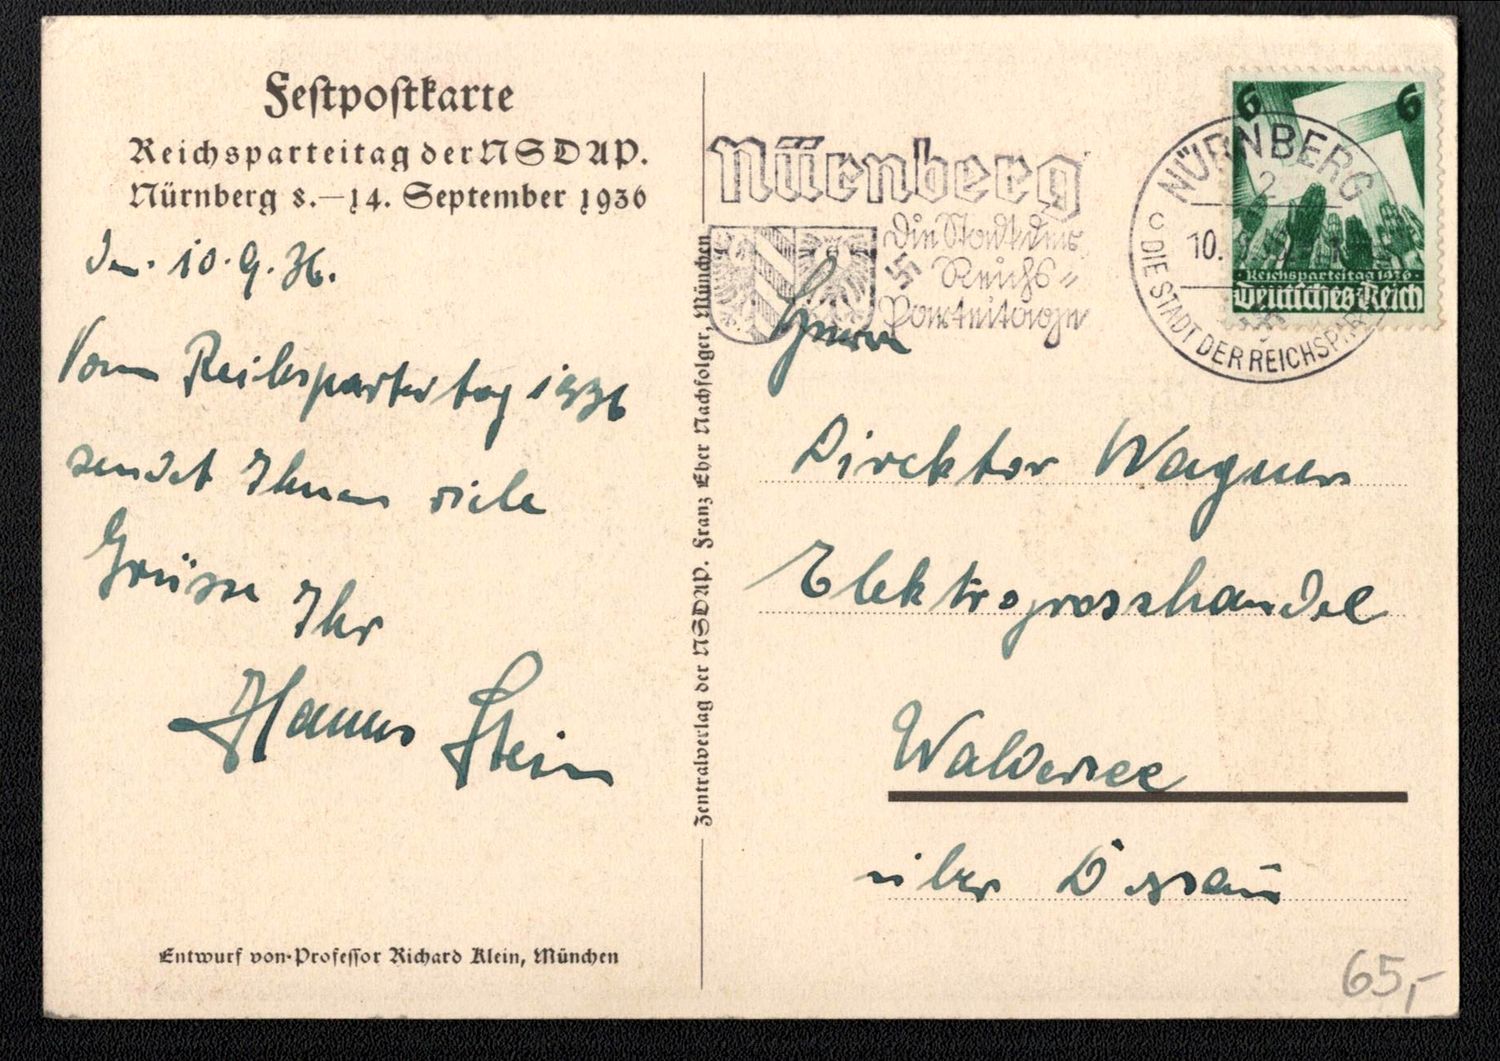 Festpostkarte
Reichsparteitag der NSDAP.
Nürnberg 8.—14. September 1936
Den 10.9.36.
Vom Reichsparteitag 1936
sendet Ihnen viele
Grüsse Ihr
Hanns Stein
Entwurf von Professor Richard Klein, München
Zentralverlag der NSDAP. Franz Eher Nachfolger, München
Nürnberg
Die Stadt der
Reichs-
Parteitage
NÜRNBERG
2
c
10.
DIE STADT DER REICHSPAR
6 6
Reichsparteitag 1936
Deutsches Reich
Herrn
Direktor Wagner
Elektrogrosshandel
Waldersee
über Dessau
65,-